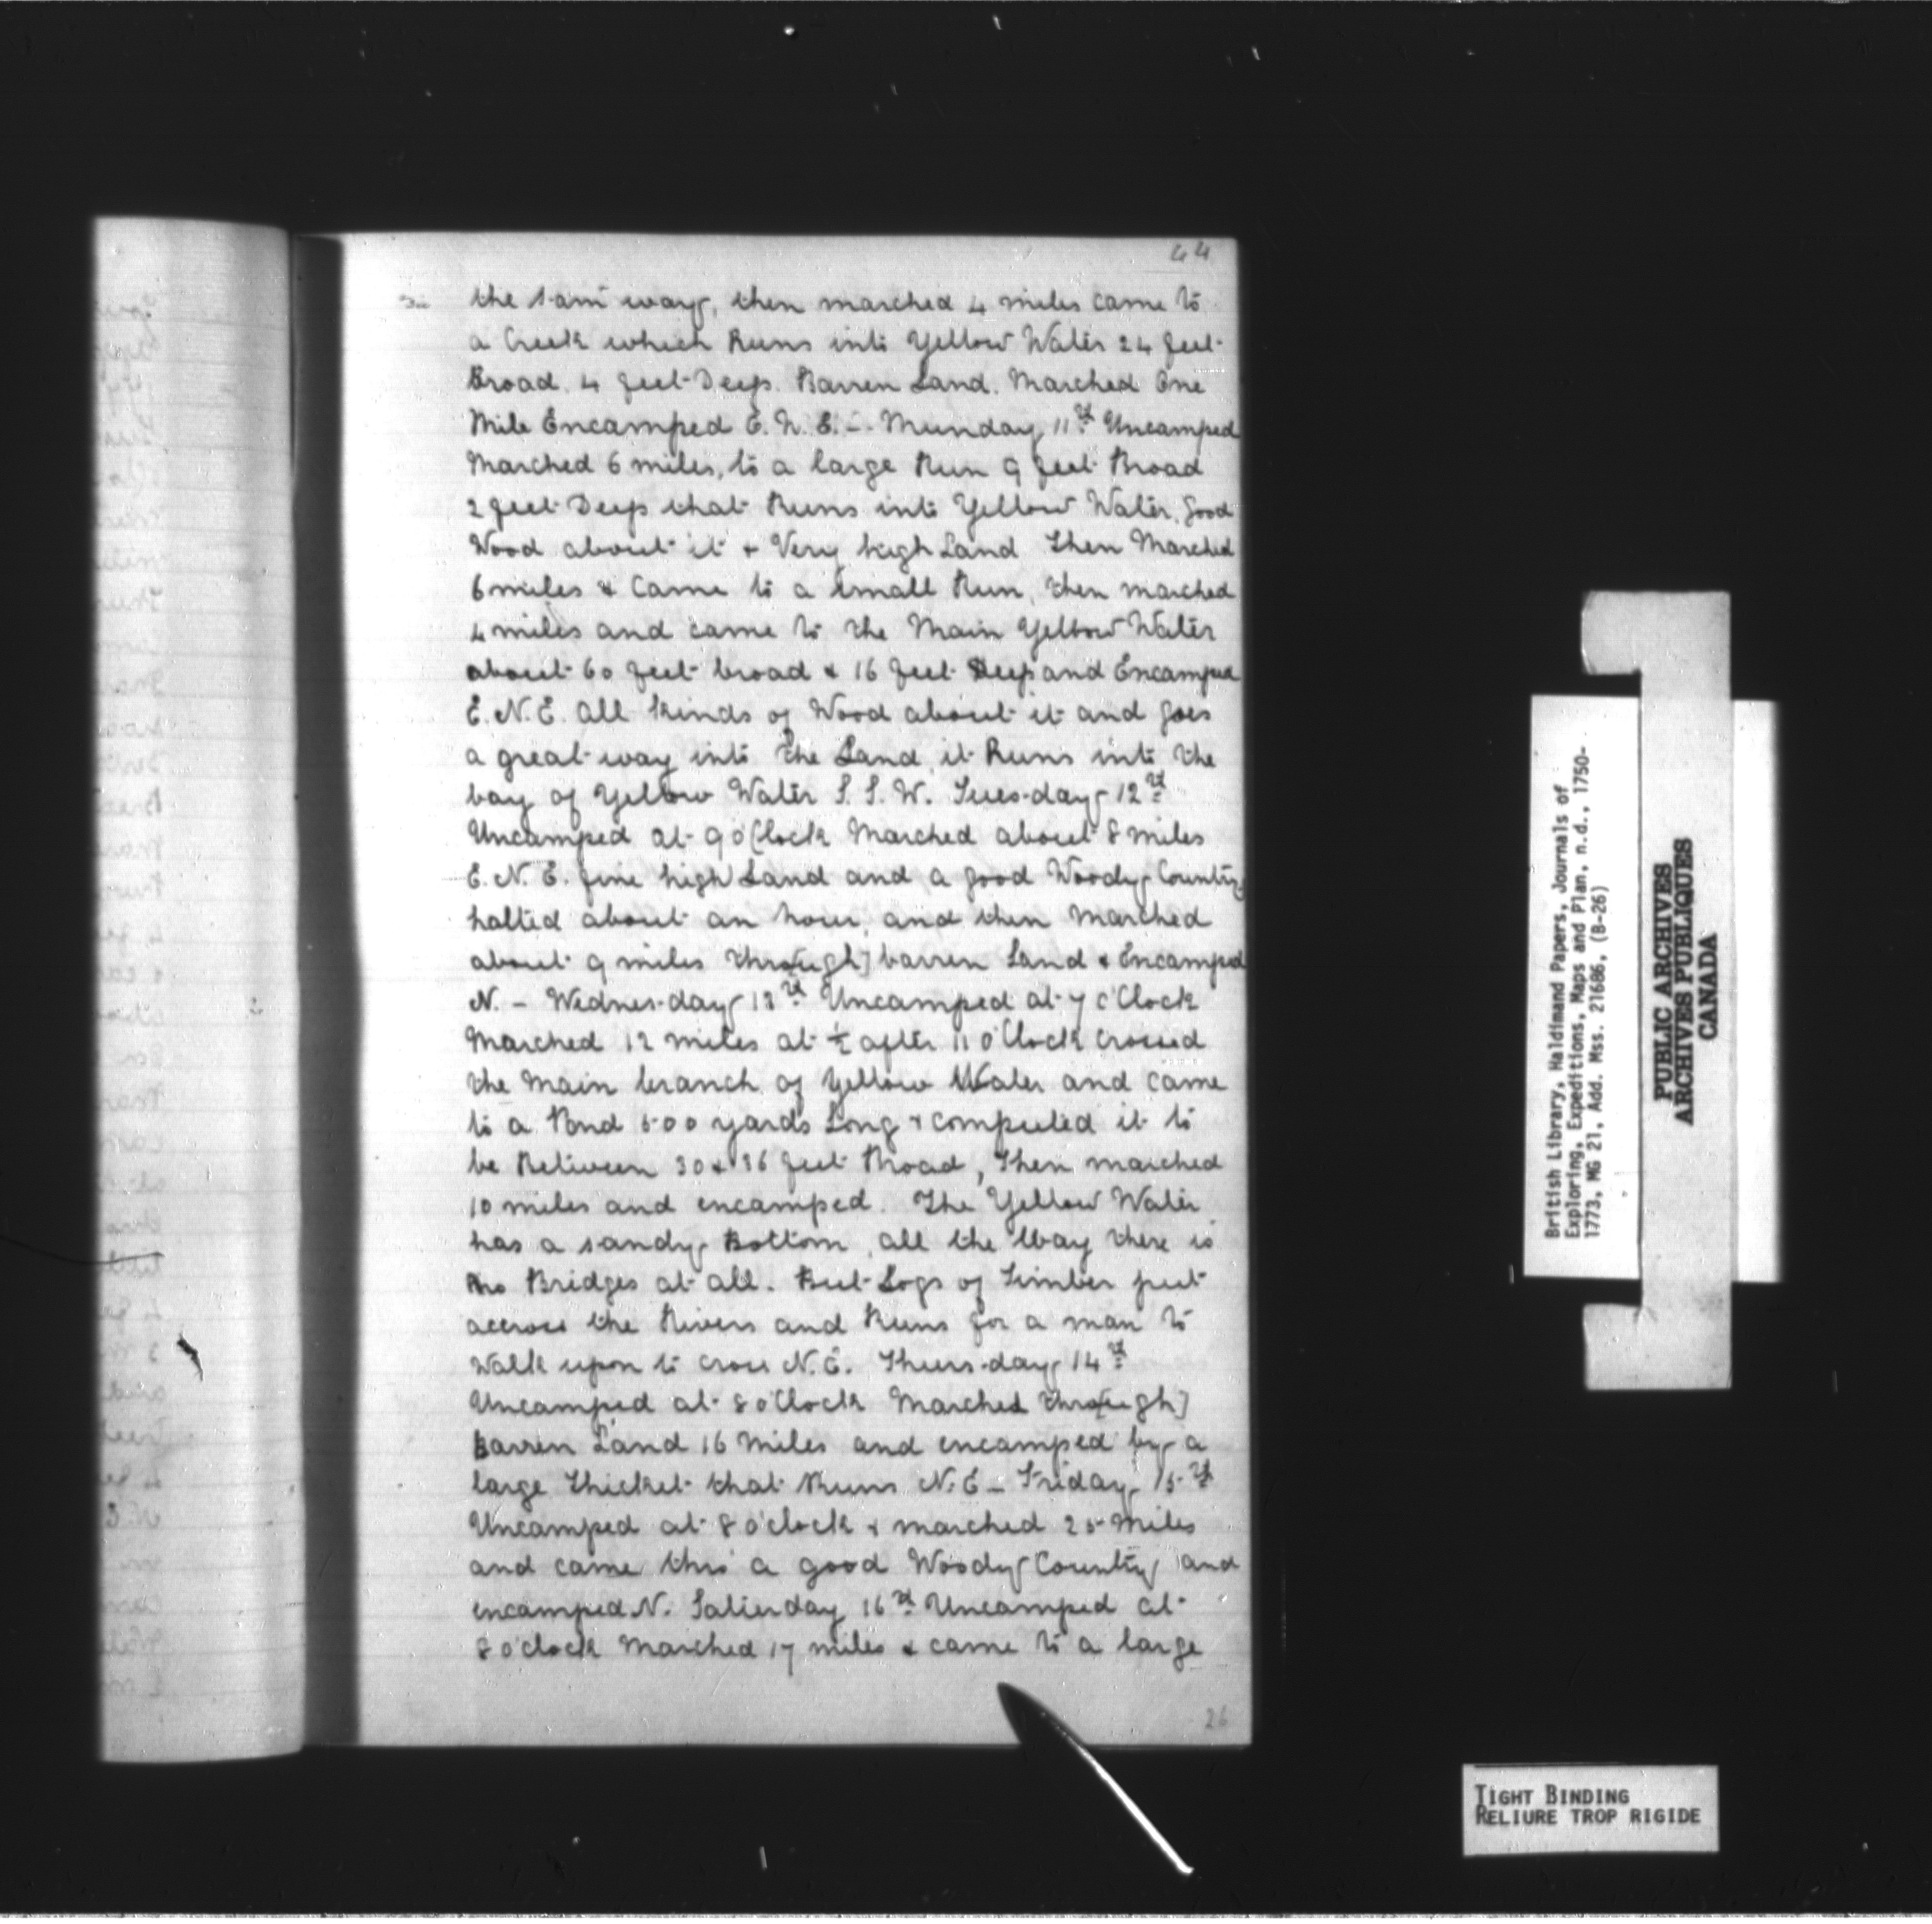 44
the same way, then marched 4 miles came to
a Creek which Runs into Yellow Water 24 feet
Broad. 4 feet Deep. Barren Land. Marched One
Mile Encamped E. N. E. - Munday 11th Uncamped
Marched 6 miles, to a large Run 9 feet Broad
2 feet Deep that Runs into Yellow Water, good
Wood about it & Very high Land Then Marched
6 miles & Came to a small Run, then marched
4 miles and came to the Main Yellow Water
about 60 feet broad & 16 feet Deep and Encamped
E. N. E. All kinds of Wood about it and goes
a great way into the Land, it Runs into the
bay of Yellow Water S. S. W. Tues-day 12th
Uncamped at 9 o'Clock Marched about 8 miles
E. N. E. fine high Land and a good Woody Country
halted about an hour, and then marched
about 9 miles thro[ugh] barren Land & Encamped
N. - Wednes-day 13th Uncamped at 7 o'Clock
Marched 12 miles at ½ after 11 o'Clock crossed
the Main branch of Yellow Water and came
to a Pond 500 yards Long & computed it to
be Between 30 & 36 feet Broad, Then marched
10 miles and encamped. The Yellow Water
has a sandy Bottom, all the Way there is
no Bridges at all. But Logs of Timber put
accross the Rivers and Runs for a man to
Walk upon to cross N. E. Thurs-day 14th
Uncamped at 8 o'Clock Marched thro[ugh]
barren Land 16 Miles and encamped by a
large Thicket that Runs N. E - Friday 15th
Uncamped at 8 o'clock & marched 25 Miles
and came thro' a good Woody Country and
encamped N. Saturday 16th Uncamped at
8 o'clock Marched 17 miles & came to a large
26
British Library, Haldimand Papers, Journals of
Exploring, Expeditions, Maps and Plan, n.d., 1750-
1773, MG 21, Add. Mss. 21686, (B-26)
PUBLIC ARCHIVES
ARCHIVES PUBLIQUES
CANADA
TIGHT BINDING
RELIURE TROP RIGIDE